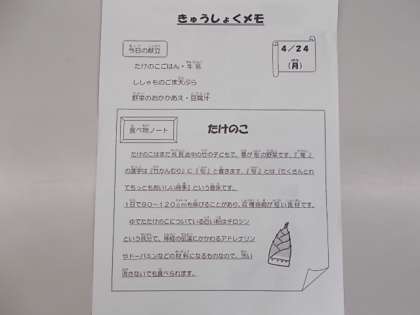 きゅうしょくメモ
4／24
（月）
今日の献立
たけのこごはん・牛乳
ししゃものごま天ぷら
野菜のおかかあえ・豆腐汁
食べ物ノート
たけのこ
たけのこはまだ成長途中の竹の子どもで、春が旬の野菜です。「筍」
の漢字は『竹かんむり』に『旬』と書きます。『旬』とは『たくさんとれ
てもっともおいしい時季』という意味です。
1日で90～120cmも伸びることがあり、収穫時期が短い食材です。
ゆでたたけのこについている白い粉はチロシン
という成分で、神経の伝達にかかわるアドレナリン
やドーパミンなどの材料になるものなので、洗い
流さないでも食べられます。